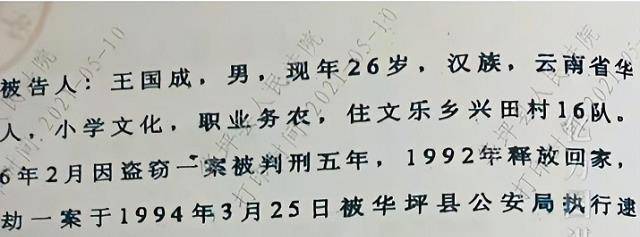 被告人：王国成，男，现年26岁，汉族，云南省华
人，小学文化，职业务农，住文乐乡兴田村16队。
6年2月因盗窃一案被判刑五年，1992年释放回家，
劫一案于1994年3月25日被华坪县公安局执行逮